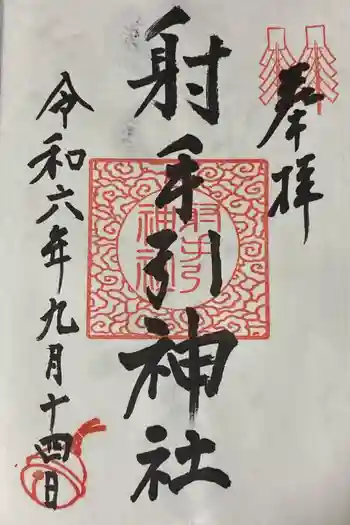 奉拝
射手引神社
射手引神社
令和六年九月十四日